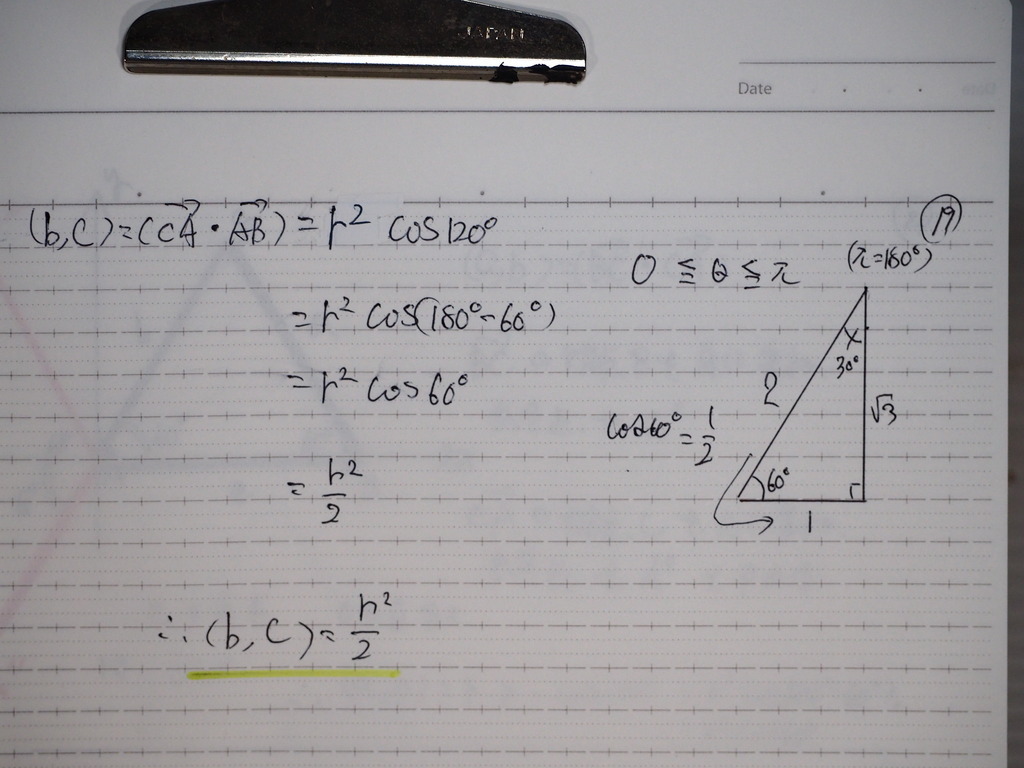 JAPAN
Date
(b,C)=(CA→・AB→)=r² cos120°
=r² cos(180°-60°)
=r² cos60°
=r²/2
∴(b,C)=r²/2
19
0≦θ≦π (π=180°)
×
30°
2
√3
cos60°=1/2
60°
1